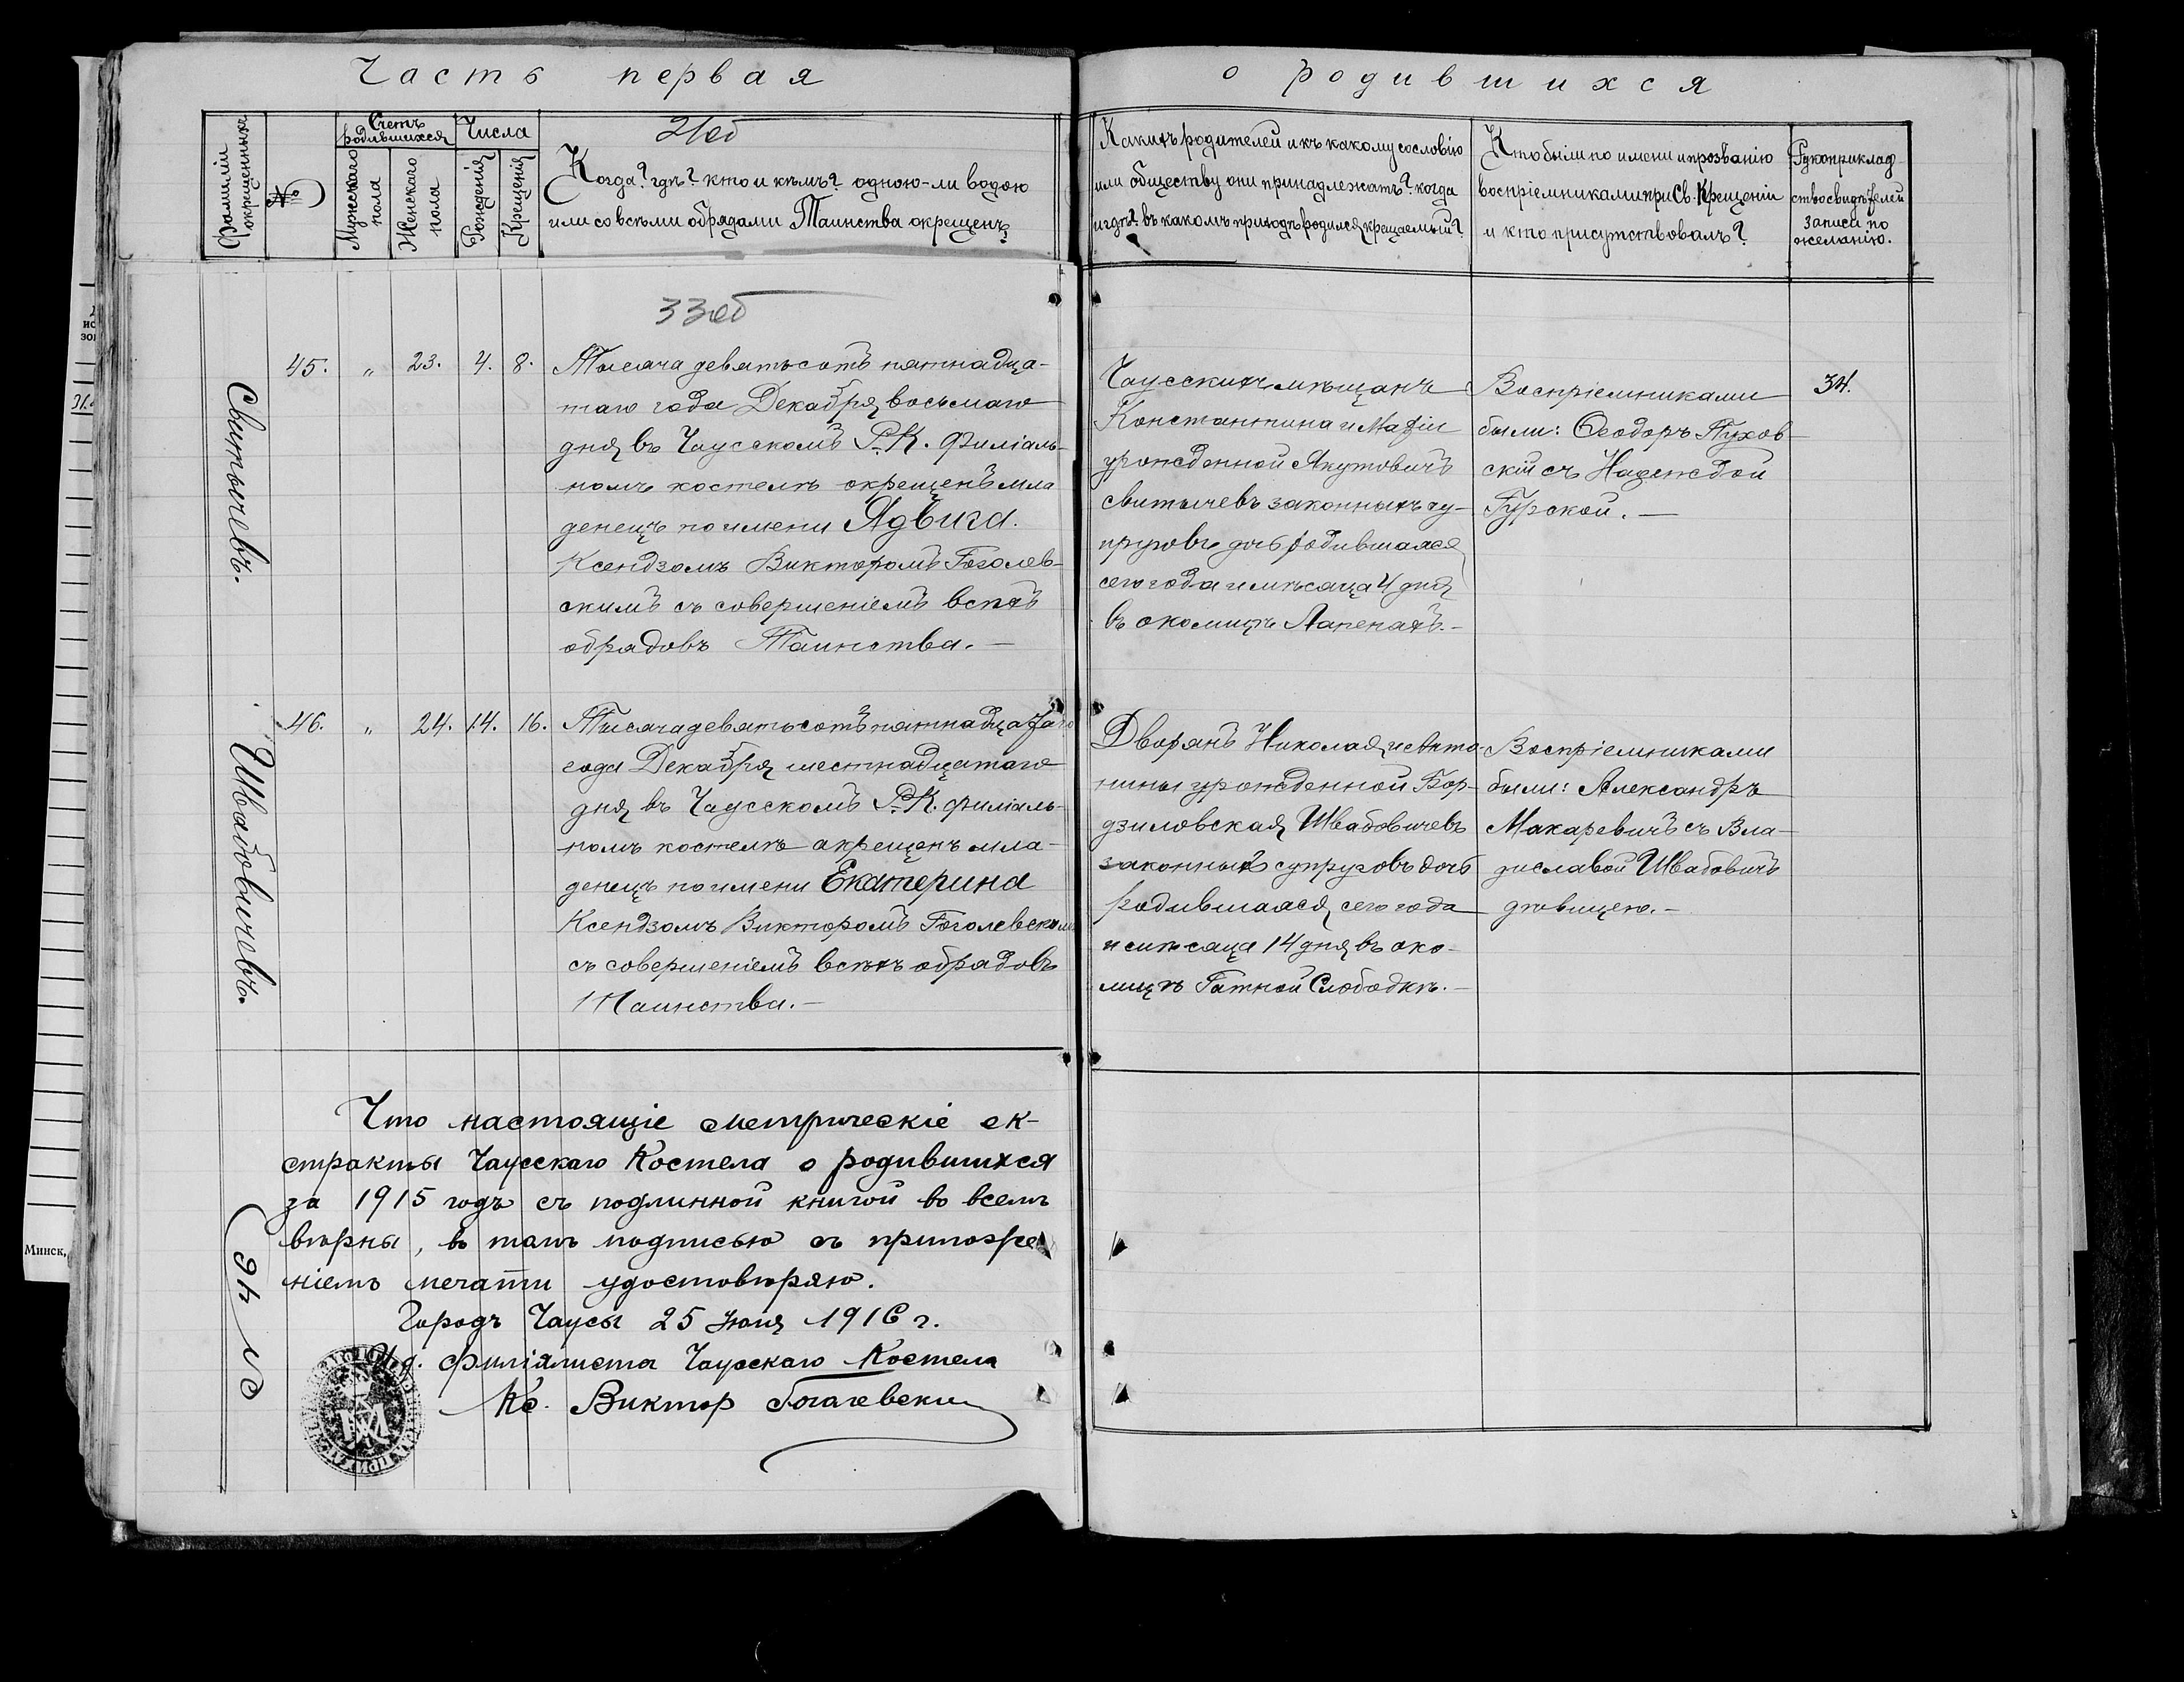 Часть первая о родившихся
Фамиліи окрещенныхъ
№
Счетъ родившихся
Мужскаго пола
Женскаго пола
Числа
Рожденія
Крещенія
21об
Когда? гдѣ? кто и кѣмъ? одною-ли водою
или со всѣми обрядами Таинства окрещенъ?
Какихъ родителей и къ какому сословію
или обществу они принадлежатъ? когда
и гдѣ? въ какомъ приходѣ родился крещаемый?
Кто были по имени и прозванію
воспріемниками при Св. Крещеніи
и кто присутствовалъ?
Рукоприклад-
ство свидѣтелей
записи по
желанію.
33об
Свитычевъ.
45. " 23. 4. 8.
Тысяча девятьсотъ пятнадца-
таго года Декабря восьмаго
дня въ Чаусскомъ Р.К. филіаль-
номъ костелѣ окрещенъ мла
денецъ по имени Ядвига.
Ксендзомъ Викторомъ Гоголев-
скимъ съ совершеніемъ всѣхъ
обрядовъ Таинства.—
Чаусскихъ мѣщанъ
Константина и Маріи
урожденной Якутовичъ
Свитычевъ законныхъ су-
пруговъ дочь родившаяся
сего года и мѣсяца 4 дня
въ околицѣ Лапенахъ.—
Воспріемниками
были: Ѳеодоръ Пухов-
скій съ Надеждой
Гурской.—
34.
Швабовичевъ.
46. " 24. 14. 16.
Тысяча девятьсотъ пятнадцатаго
года Декабря шестнадцатаго
дня въ Чаусскомъ Р.К. филіаль-
номъ костелѣ акрещенъ мла-
денецъ по имени Екатерина
Ксендзомъ Викторомъ Гоголевским
съ совершеніемъ всѣхъ обрядовъ
Таинства.—
Дворянъ Николая и Анто-
нины урожденной Бор-
дзиловская Швабовичевъ
законных супруговъ дочь
родившаяся сего года
и мѣсяца 14 дня въ око-
лицѣ Гатной Слободкѣ.—
Воспріемниками
были: Александръ
Макаревичъ съ Вла-
диславой Швабовичъ
дѣвицею.—
Что настоящіе метрическіе ек-
стракты Чаусскаго Костела о родившихся
за 1915 годъ съ подлинной книгой во всемъ
вѣрны, въ томъ подписью съ приложе
ніемъ печати удостовѣряю.
Городъ Чаусы 25 Июня 1916 г.
И.д. Филіялиста Чаусскаго Костела
Кс. Виктор Гогалевски
46
Минск,